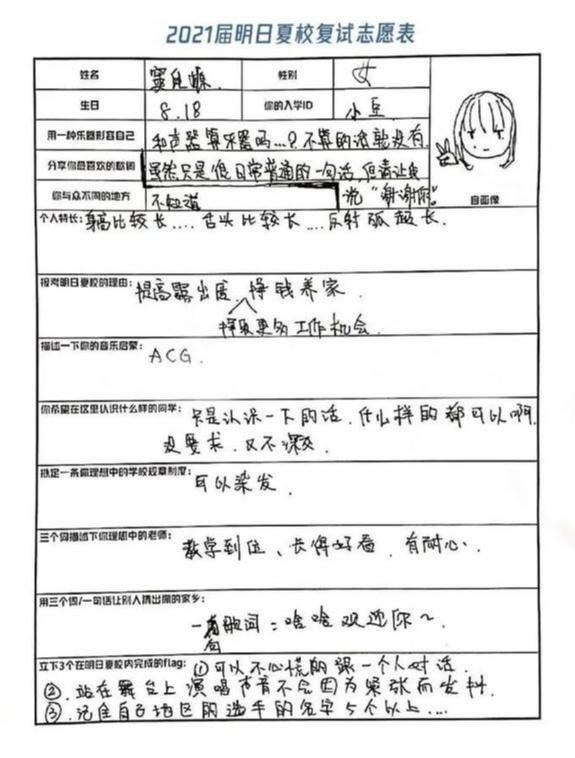 2021届明日夏校复试志愿表
姓名 窦佳嫄 性别 女
生日 8.18 你的入学ID 小豆
用一种乐器形容自己 和声器算乐器吗…?不算的话就没有
分享你最喜欢的歌词 虽然只是很日常普通的一句话,但请让我
说“谢谢你”
你与众不同的地方 不知道 自画像
个人特长: 身高比较长....舌头比较长....反射弧超长.
报考明日夏校的理由: 提高露出度、挣钱养家
择取更多工作机会.
描述一下你的音乐启蒙: ACG.
你希望在这里认识什么样的同学: 只是认识一下的话,什么样的都可以啊.
没要求,又不深交.
拟定一条你理想中的学校规章制度: 可以染发.
三个词描述下你理想中的老师: 教学到位、长得好看、有耐心.
用三个词/一句话让别人猜出你的家乡:
一句歌词:啥啥欢迎你~
立下3个在明日夏校内完成的flag: ①可以不心慌的跟一个人对话.
②.站在舞台上演唱声音不会因为紧张而发抖.
③.记住自己地区的选手的名字5个以上...